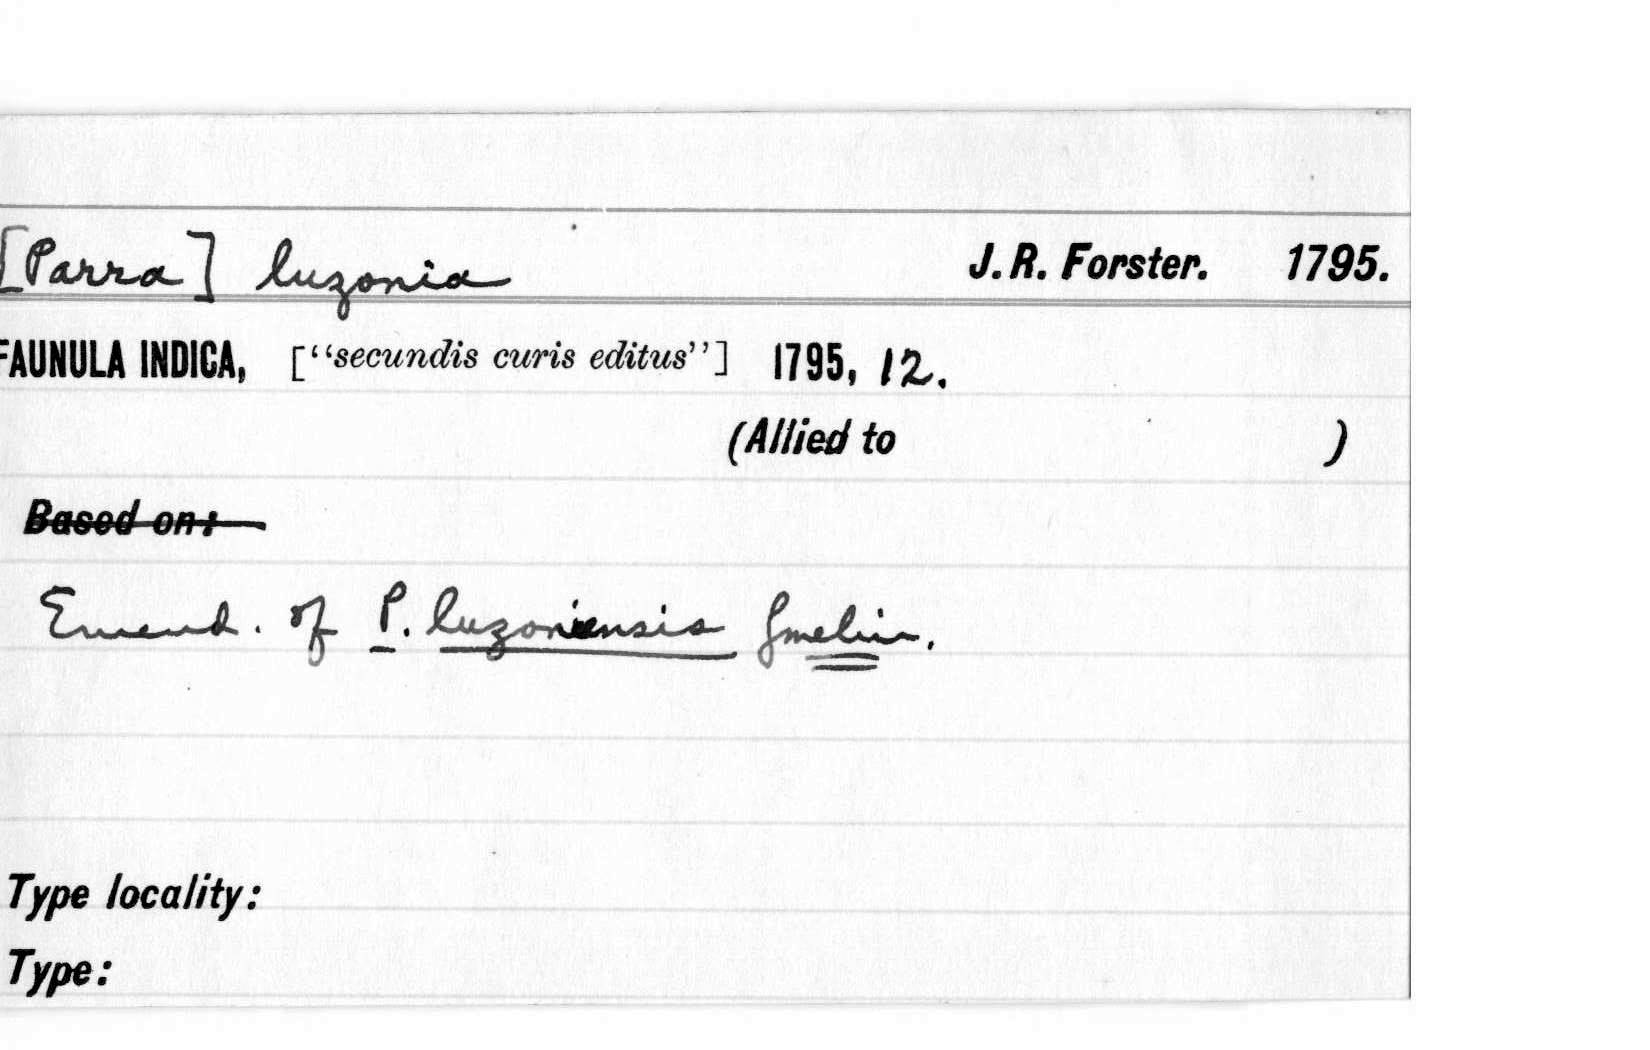 [Parra] luzonia J. R. Forster. 1795.
FAUNULA INDICA, [“secundis curis editus”] 1795, 12.
(Allied to )
Based on:
Emend. of P. luzoniensis Gmelin.
Type locality:
Type: